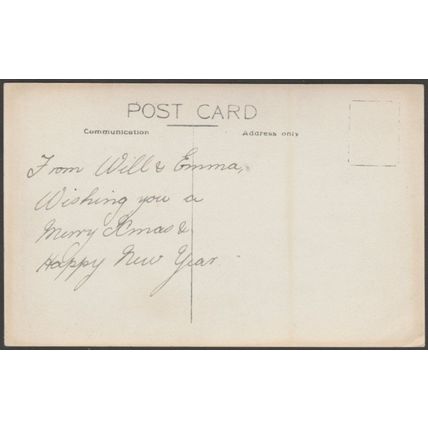 POST CARD
Communication
Address only
From Will & Emma,
Wishing you a
Merry Xmas &
Happy New Year.